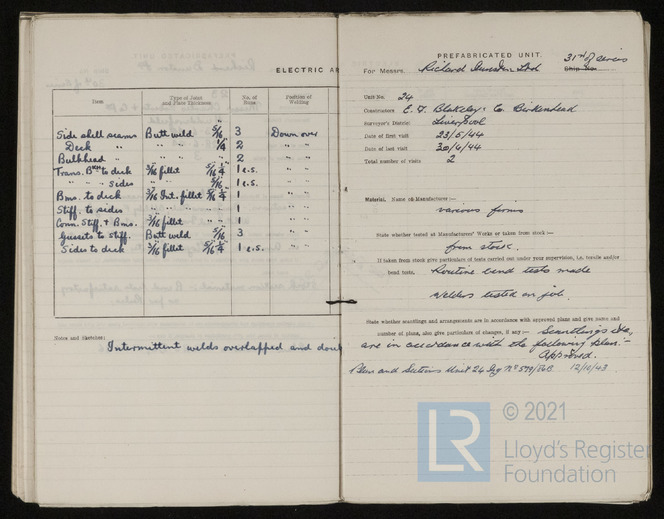 ELECTRIC AR
Item
Type of Joint and Plate Thickness.
No. of Runs
Position of Welding
Side shell seams Butt weld 5/16 3 Down over
Deck " " " 1/4 2 " "
Bulkhead " " " 2 " "
Trans. Bhd to deck 3/16 fillet 5/16 1/4 1 e.s. " "
" " sides " 5/16 1 e.s. " "
Bms. to deck 3/16 Int. fillet 5/16 1/4 1 " "
Stiff. to sides " " " 1 " "
Conn. Stiff. & Bms. 3/16 fillet " " 1 " "
Gussets to Stiff. Butt weld 5/16 3 " "
Sides to deck 3/16 fillet 5/16 1/4 1 e.s. " "
Notes and Sketches:
Intermittent welds overlapped and doub
PREFABRICATED UNIT.
31st of series
For Messrs. Richard Dunston Ltd
Unit No. 24
Constructors E. F. Blakeley & Co. Birkenhead
Surveyor's District Liverpool
Date of first visit 23/5/44
Date of last visit 30/4/44
Total number of visits 2
Material. Name of Manufacturer:—
various firms
State whether tested at Manufacturers' Works or taken from stock:—
from stock.
If taken from stock give particulars of tests carried out under your supervision, i.e. tensile and/or
bend tests. Routine bend tests made
Welders tested on job.
State whether scantlings and arrangements are in accordance with approved plans and give name and
number of plans, also give particulars of changes, if any:— Scantlings &c,
are in accordance with the following plan:-
Approved.
Plan and Sections Unit 24 Dg No 12/10/43
© 2021
LR
Lloyd's Register
Foundation